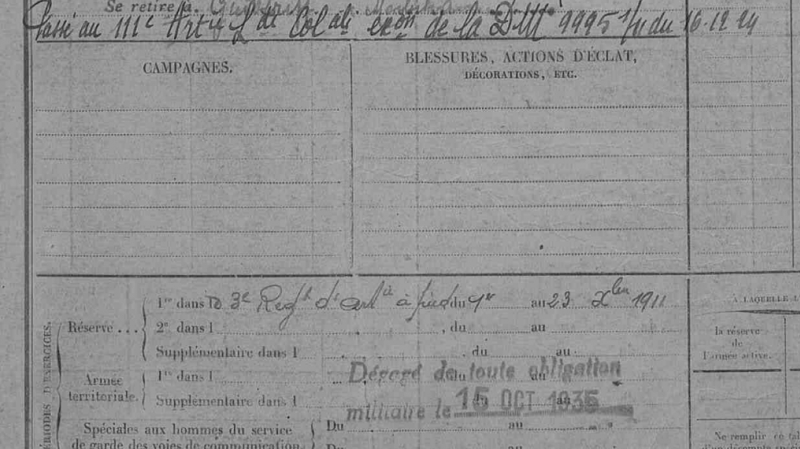 Se retire à
Passé au 111e Artie Lde Colale exon de la DM 9995 1/11 du 16.12.24
CAMPAGNES.
BLESSURES, ACTIONS D'ÉCLAT,
DÉCORATIONS, ETC.
PÉRIODES D'EXERCICES.
Réserve ...
1re dans le 3e Regt d'artie à pied du 1er au 23 Xbre 1911
2e dans l , du au
Supplémentaire dans l , du au
Armée
territoriale.
1re dans l , du au
Supplémentaire dans l , du au
Dégagé de toute obligation
militaire le 15 OCT 1935
Spéciales aux hommes du service
de garde des voies de communication
Du au
Du
À LAQUELLE
la réserve
de
l'armée active.
Ne remplir ce
d'un décompte